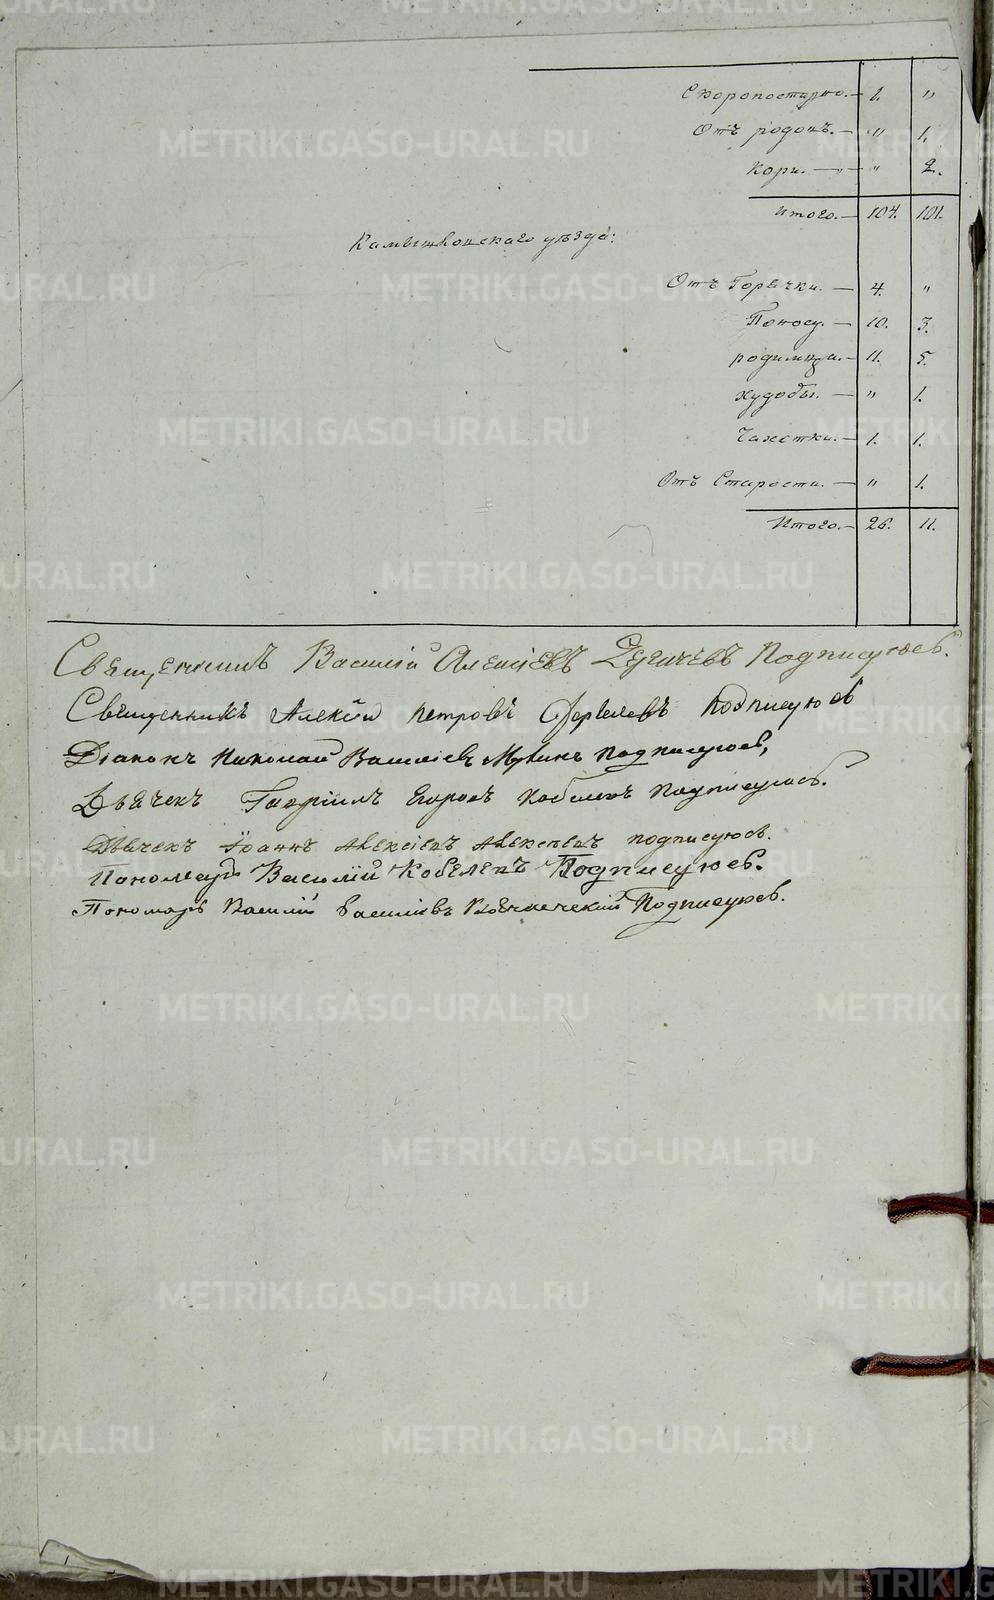 Скоропостижно. — 1. "
Отъ родовъ. — " 1.
Кори. — " 2.
Итого. — 104. 101.
Камышловскаго уѣзда:
Отъ Горячки. — 4. "
Поносу. — 10. 3.
родимца. — 11. 5.
худобы. — " 1.
Чахотки. — 1. 1.
Отъ Старости. — " 1.
Итого. — 26. 11.
Священникъ Василій Алексіевъ подписуюсь.
Священникъ Алексій Петровъ подписуюсь
Діаконъ Николай Василіевъ подписуюсь,
Дьячекъ Гавріилъ Егоровъ Кобелевъ подписуюсь.
Дьячекъ Іоаннъ Алексіевъ подписуюсь.
Пономарь Василій Кобелевъ Подписуюсь.
Пономарь Василій Василіевъ Подписуюсь.
METRIKI.GASO-URAL.RU